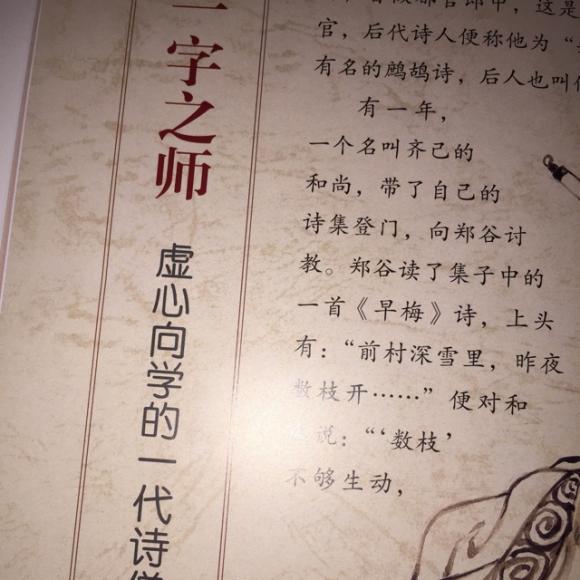 一字之师
虚心向学的一代诗僧
官，后代诗人便称他为“
有名的鹧鸪诗，后人也叫他
有一年，
一个名叫齐己的
和尚，带了自己的
诗集登门，向郑谷讨
教。郑谷读了集子中的
一首《早梅》诗，上头
有：“前村深雪里，昨夜
数枝开……”便对和
说：“‘数枝’
不够生动，